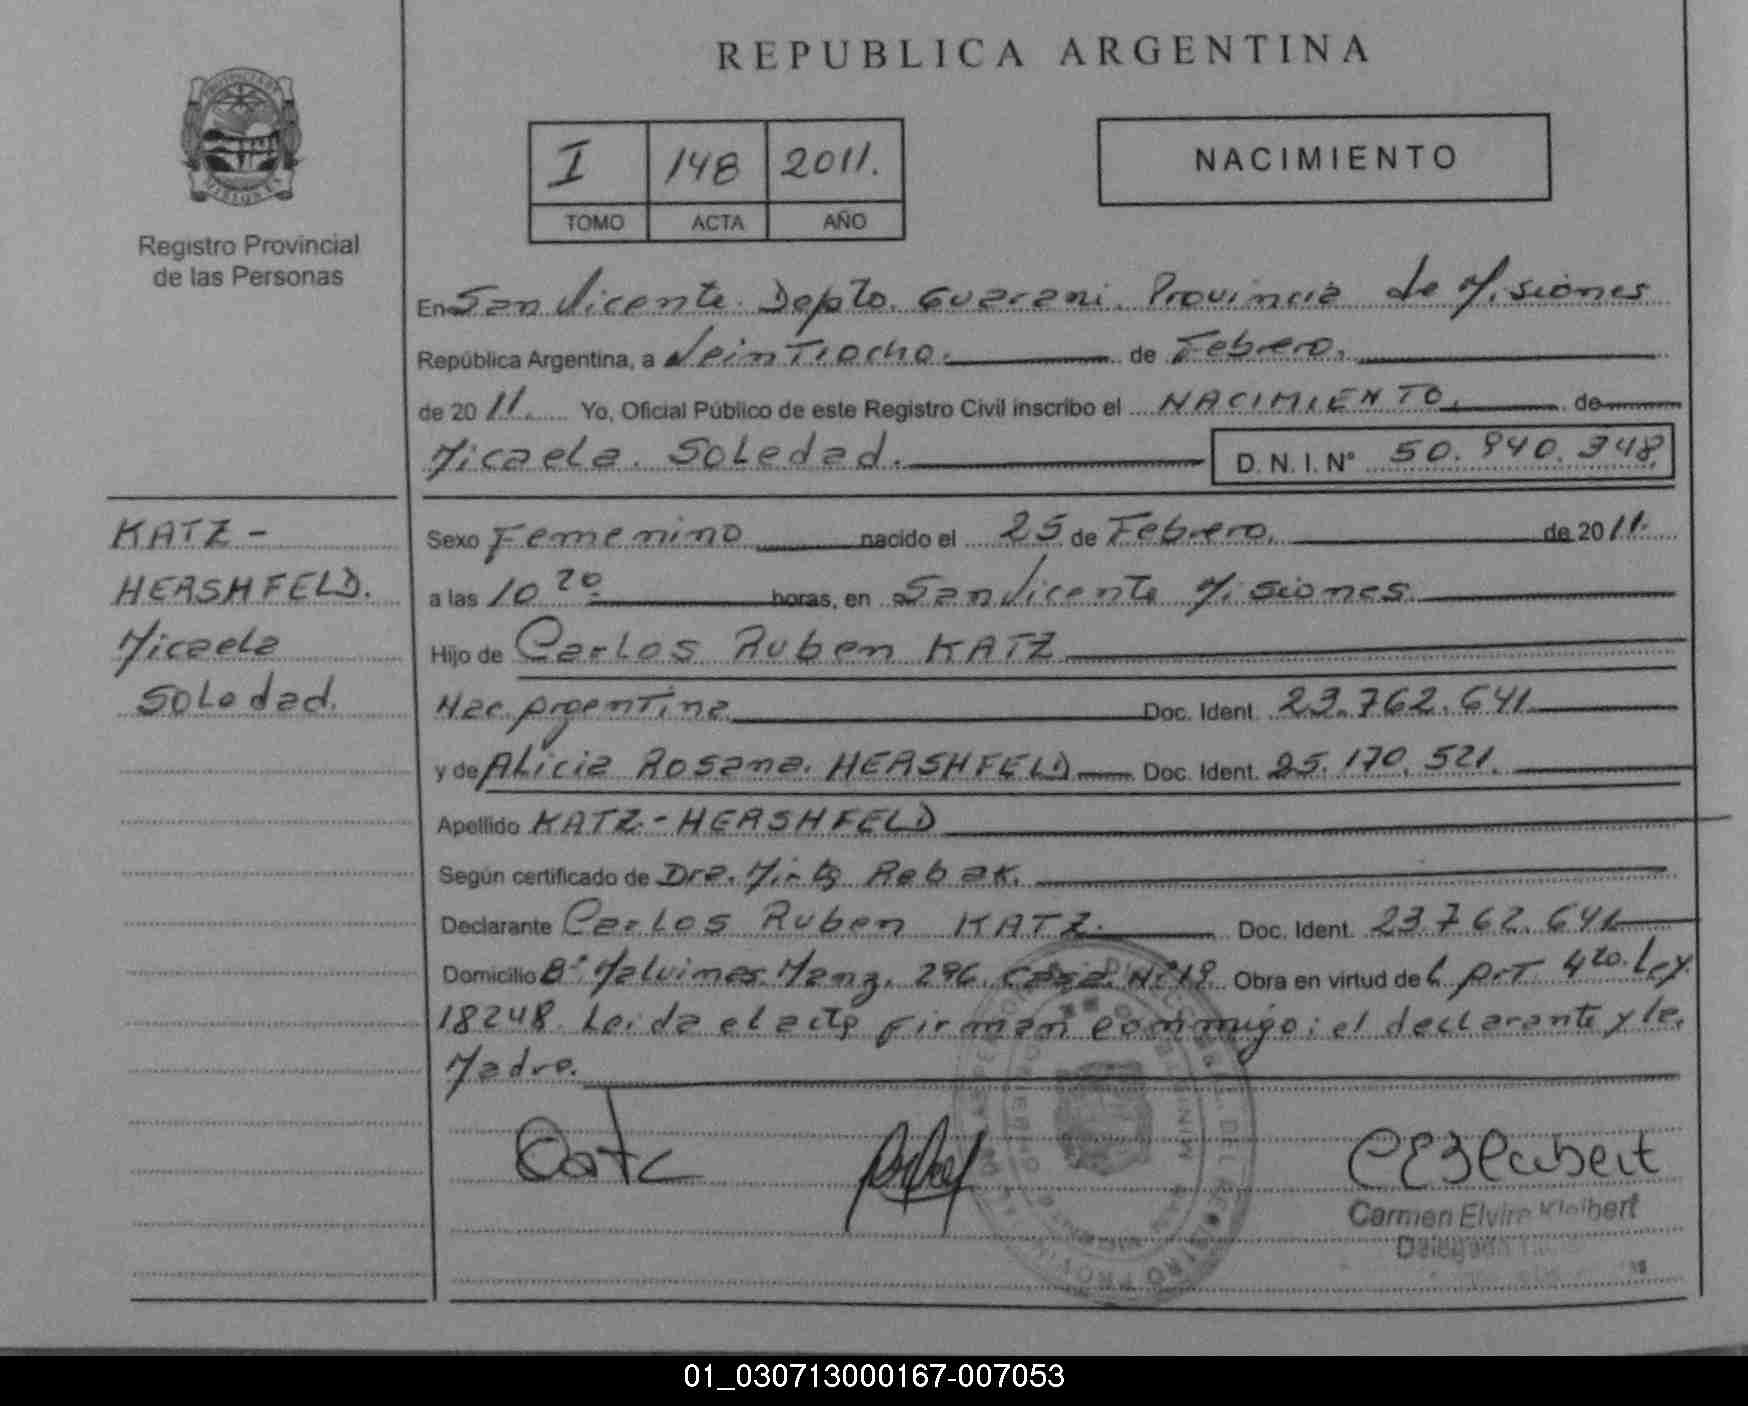 REPUBLICA ARGENTINA
I 148 2011.
TOMO ACTA AÑO
NACIMIENTO
Registro Provincial
de las Personas
En San Vicente. Depto. Guarani. Provincia de Misiones
República Argentina, a Veintiocho. de Febrero.
de 2011. Yo, Oficial Público de este Registro Civil inscribo el NACIMIENTO. de
Micaela. Soledad. D. N. I. N° 50. 940. 348
KATZ -
HERSHFELD.
Micaela
Soledad.
Sexo Femenino nacido el 25 de Febrero. de 2011.
a las 10 20 horas, en San Vicente Misiones
Hijo de Carlos Ruben KATZ
Nac. Argentina Doc. Ident. 23.762.641
y de Alicia Rosana. HERSHFELD Doc. Ident. 25. 170. 521.
Apellido KATZ - HERSHFELD
Según certificado de Dra. Mirta Rebak.
Declarante Carlos Ruben KATZ. Doc. Ident. 23.762.641
Domicilio B° Malvinas. Manz. 296. Casa. N° 19. Obra en virtud del Art. 4to. Ley
18248. Leida el acta firman conmigo: el declarante y la.
Madre.
Catz
Carmen Elvira Kleibert
Delegada
01_030713000167-007053